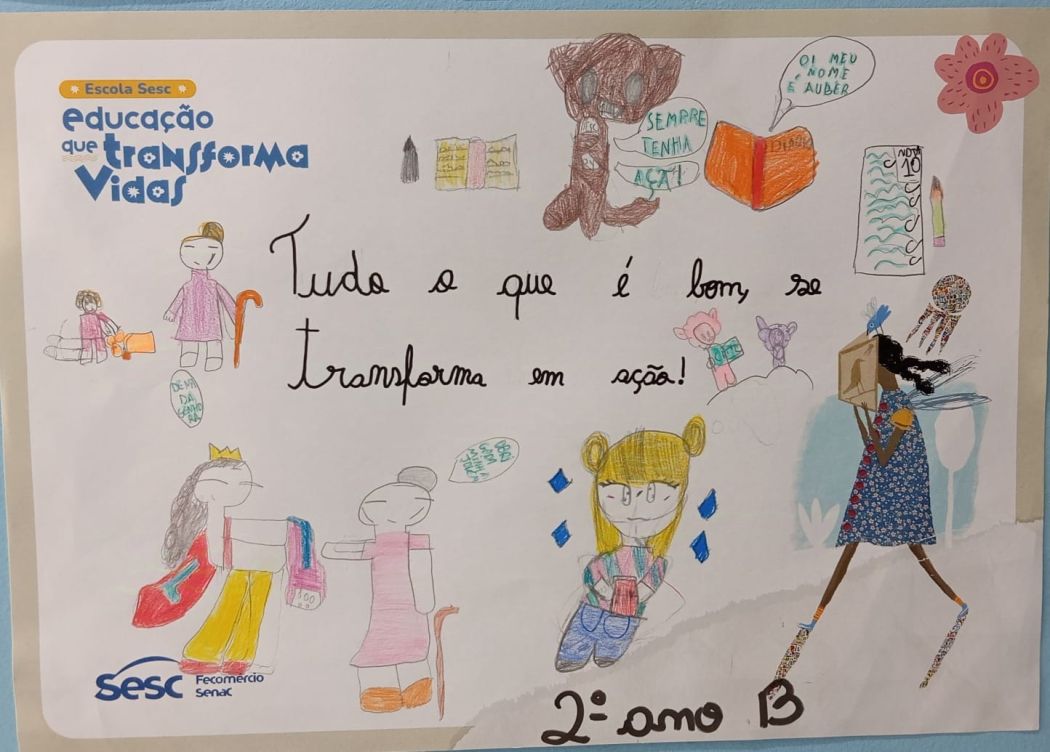 Escola Sesc
educação
que transforma
Vidas
SEMPRE
TENHA
AÇA!
OI MEU
NOME
É AUBER
DIARIO
NOTA
10
Tudo o que é bom, se
transforma em ação!
DE NA
DA
SENHO
RA
OBRI
GADA
MINHA
Sesc
Fecomércio
Senac
2º ano B